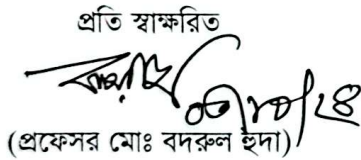 প্রতি স্বাক্ষরিত
(প্রফেসর মোঃ বদরুল হুদা)